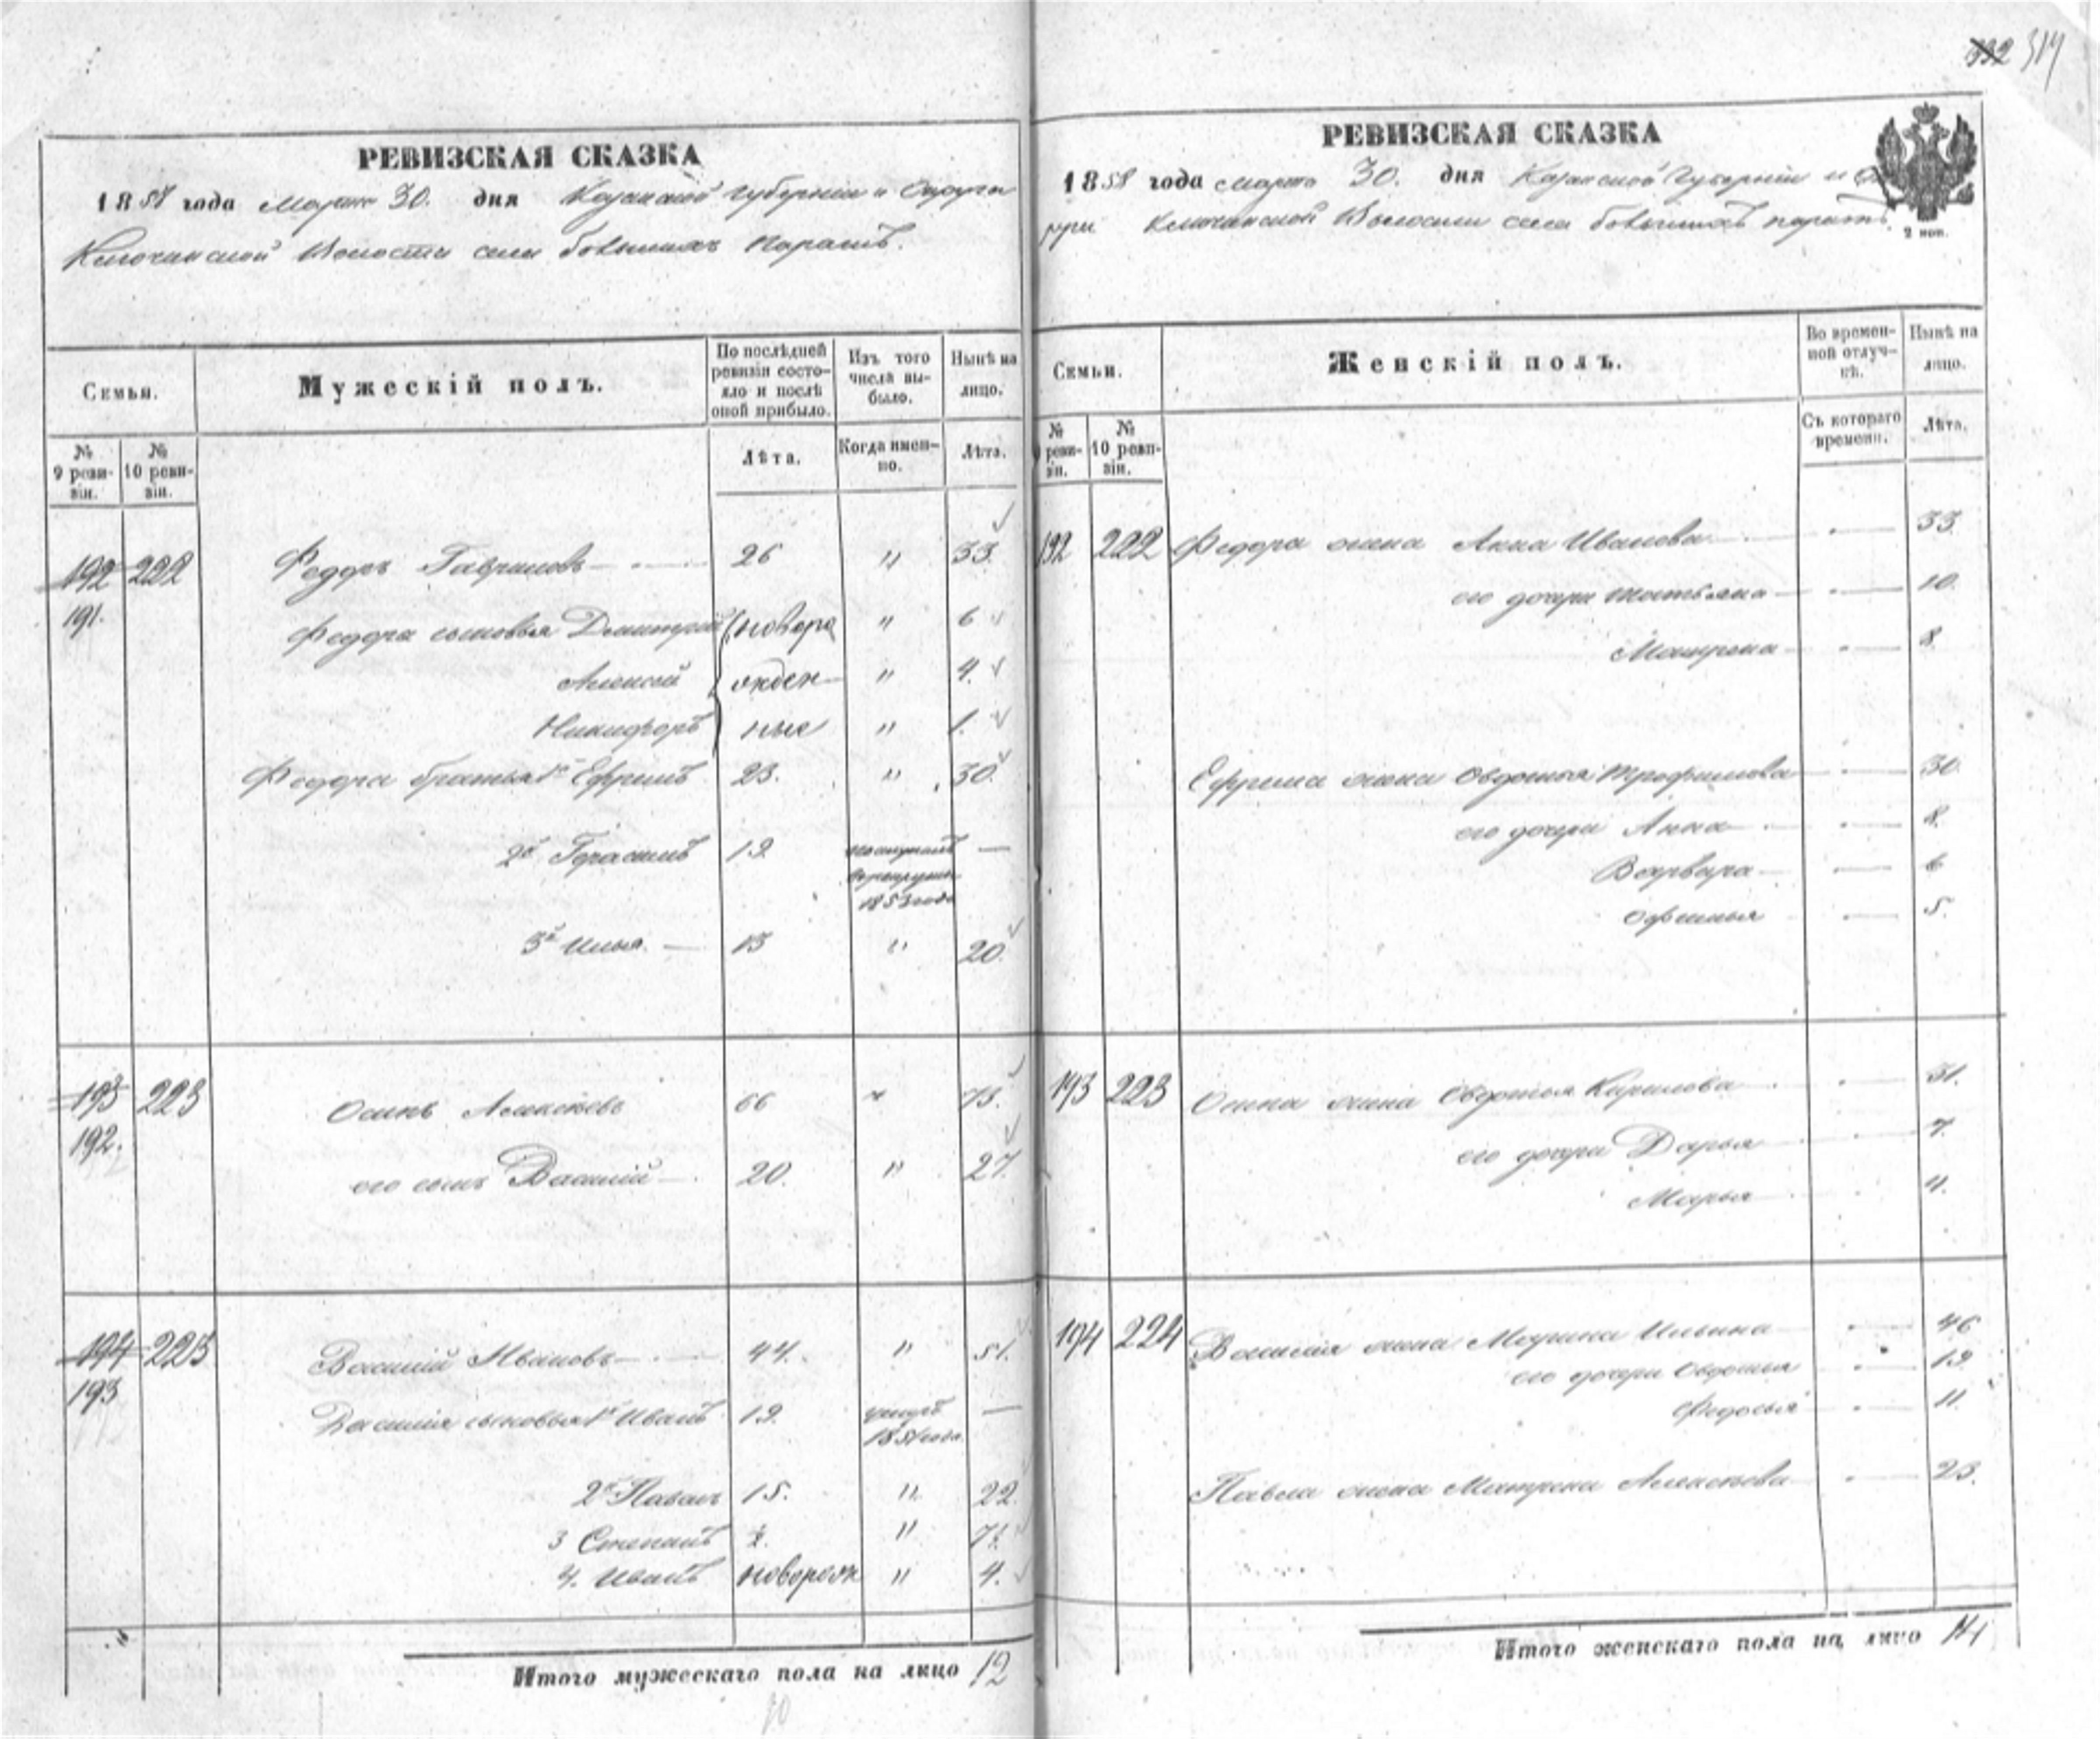 332 314
РЕВИЗСКАЯ СКАЗКА
1858 года Марта 30. дня Казанской губернии и Округа
Ключинской Волости села большихъ Паратъ.
Семьи.
Мужескій полъ.
По послѣдней ревизіи состояло и послѣ оной прибыло.
Изъ того числа выбыло.
Нынѣ на лицо.
№ 9 ревизіи.
№ 10 ревизіи.
Лѣта.
Когда именно.
Лѣта.
192 222 Федоръ Гавриловъ 26 " 33
191.
Федора сыновья Дмитрій новоро " 6
Алексей жден " 4.
Никифоръ ные " 1.
Федора братья 1й Ефримъ 23. " 30
2й Герасимъ 19 —
1853 года
3й Илья. — 13 " 20
193 223 Осипъ Алексѣевъ 66 " 73.
192.
его сынъ Василій 20. " 27.
194 225 Василій Ивановъ 44. " 51.
193
Василія сыновья 1й Иванъ 19. умеръ —
185 года.
2й Павелъ 15. " 22.
3 Степанъ ½. " 7½
4. Иванъ новорож " 4.
Итого мужескаго пола на лицо 12
10
РЕВИЗСКАЯ СКАЗКА
1858 года марта 30. дня Казанской Губерніи и
Ключинской Волости села большихъ паратъ.
2 коп.
Семьи.
Женскій полъ.
Во временной отлучкѣ.
Нынѣ на лицо.
№ 9 ревизіи.
№ 10 ревизіи.
Съ котораго времени.
Лѣта.
192 222 Федора жена Анна Иванова — 33
его дочери Татьяна — 10.
Матрена — 8.
Ефрима жена Овдотья Трофимова — 30.
его дочери Анна — 8.
Варвара — 6
Офимья — 5.
193 223 Осипа жена Овдотья Кирилова — 51.
его дочери Дарья 7.
Марья 4.
194 224 Василія жена Марина Ильина — 46
его дочери Овдотья — 19
Федосья — 11.
Павла жена Матрена Алексѣева — 23.
Итого женскаго пола на лицо 14